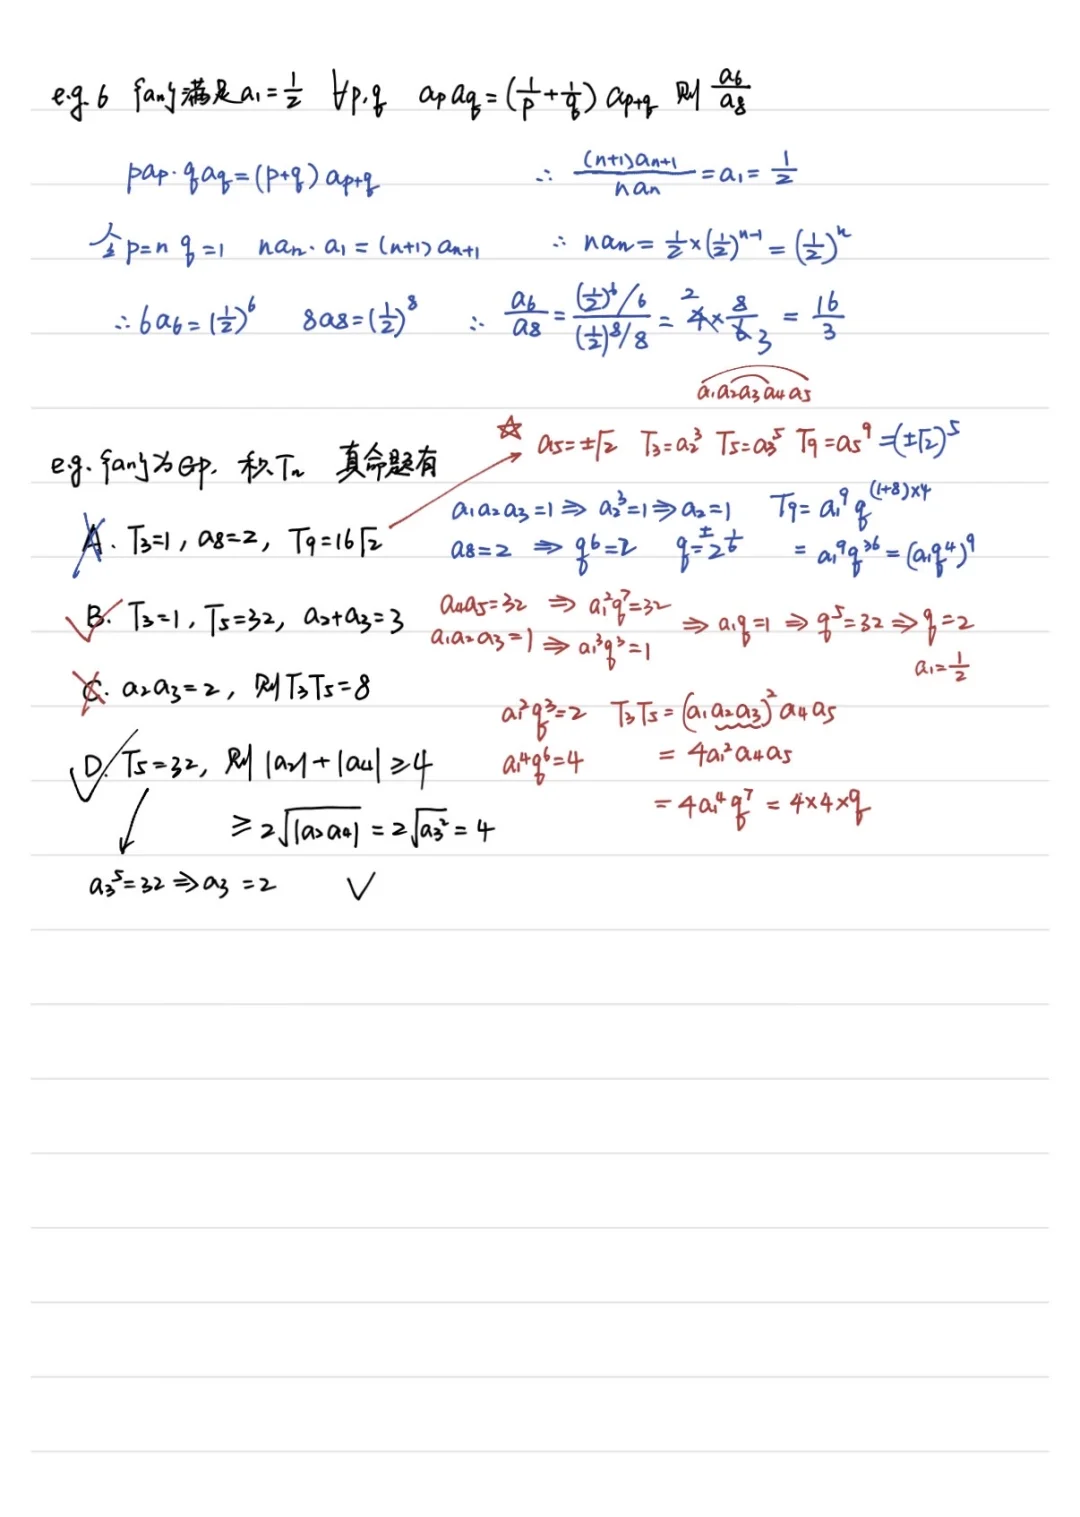 e.g. 6 {an}满足a₁=1/2 ∀p.q apaq=(1/p+1/q)ap+q 则 a₆/a₈
pap·qaq=(p+q)ap+q ∴ (n+1)an+1/nan=a₁=1/2
令p=n q=1 nan·a₁=(n+1)an+1 ∴ nan=1/2×(1/2)ⁿ⁻¹=(1/2)ⁿ
∴6a₆=(1/2)⁶ 8a₈=(1/2)⁸ ∴ a₆/a₈=((1/2)⁶/6)/((1/2)⁸/8)=4×8/6=16/3
2
3
a₁a₂a₃a₄a₅
☆ a₅=±√2 T₃=a₂³ T₅=a₃⁵ T₉=a₅⁹=(±√2)⁵
e.g. {an}为Gp. 积Tn 真命题有
a₁a₂a₃=1⇒a₂³=1⇒a₂=1 T₉=a₁⁹q^(1+8)×4
A. T₃=1, a₈=2, T₉=16√2
a₈=2 ⇒q⁶=2 q=±2^(1/6) =a₁⁹q³⁶=(a₁q⁴)⁹
B. T₃=1, T₅=32, a₂+a₃=3
a₄a₅=32 ⇒a₁²q⁷=32
a₁a₂a₃=1⇒a₁³q³=1 ⇒a₁q=1⇒q⁵=32⇒q=2
a₁=1/2
C. a₂a₃=2, 则T₃T₅=8
a₁²q³=2 T₃T₅=(a₁a₂a₃)²a₄a₅
D. T₅=32, 则|a₂|+|a₄|≥4
a₁⁴q⁶=4 =4a₁²a₄a₅
=4a₁⁴q⁷=4×4×q
≥2√|a₂a₄|=2√a₃²=4
a₃⁵=32⇒a₃=2 ✓